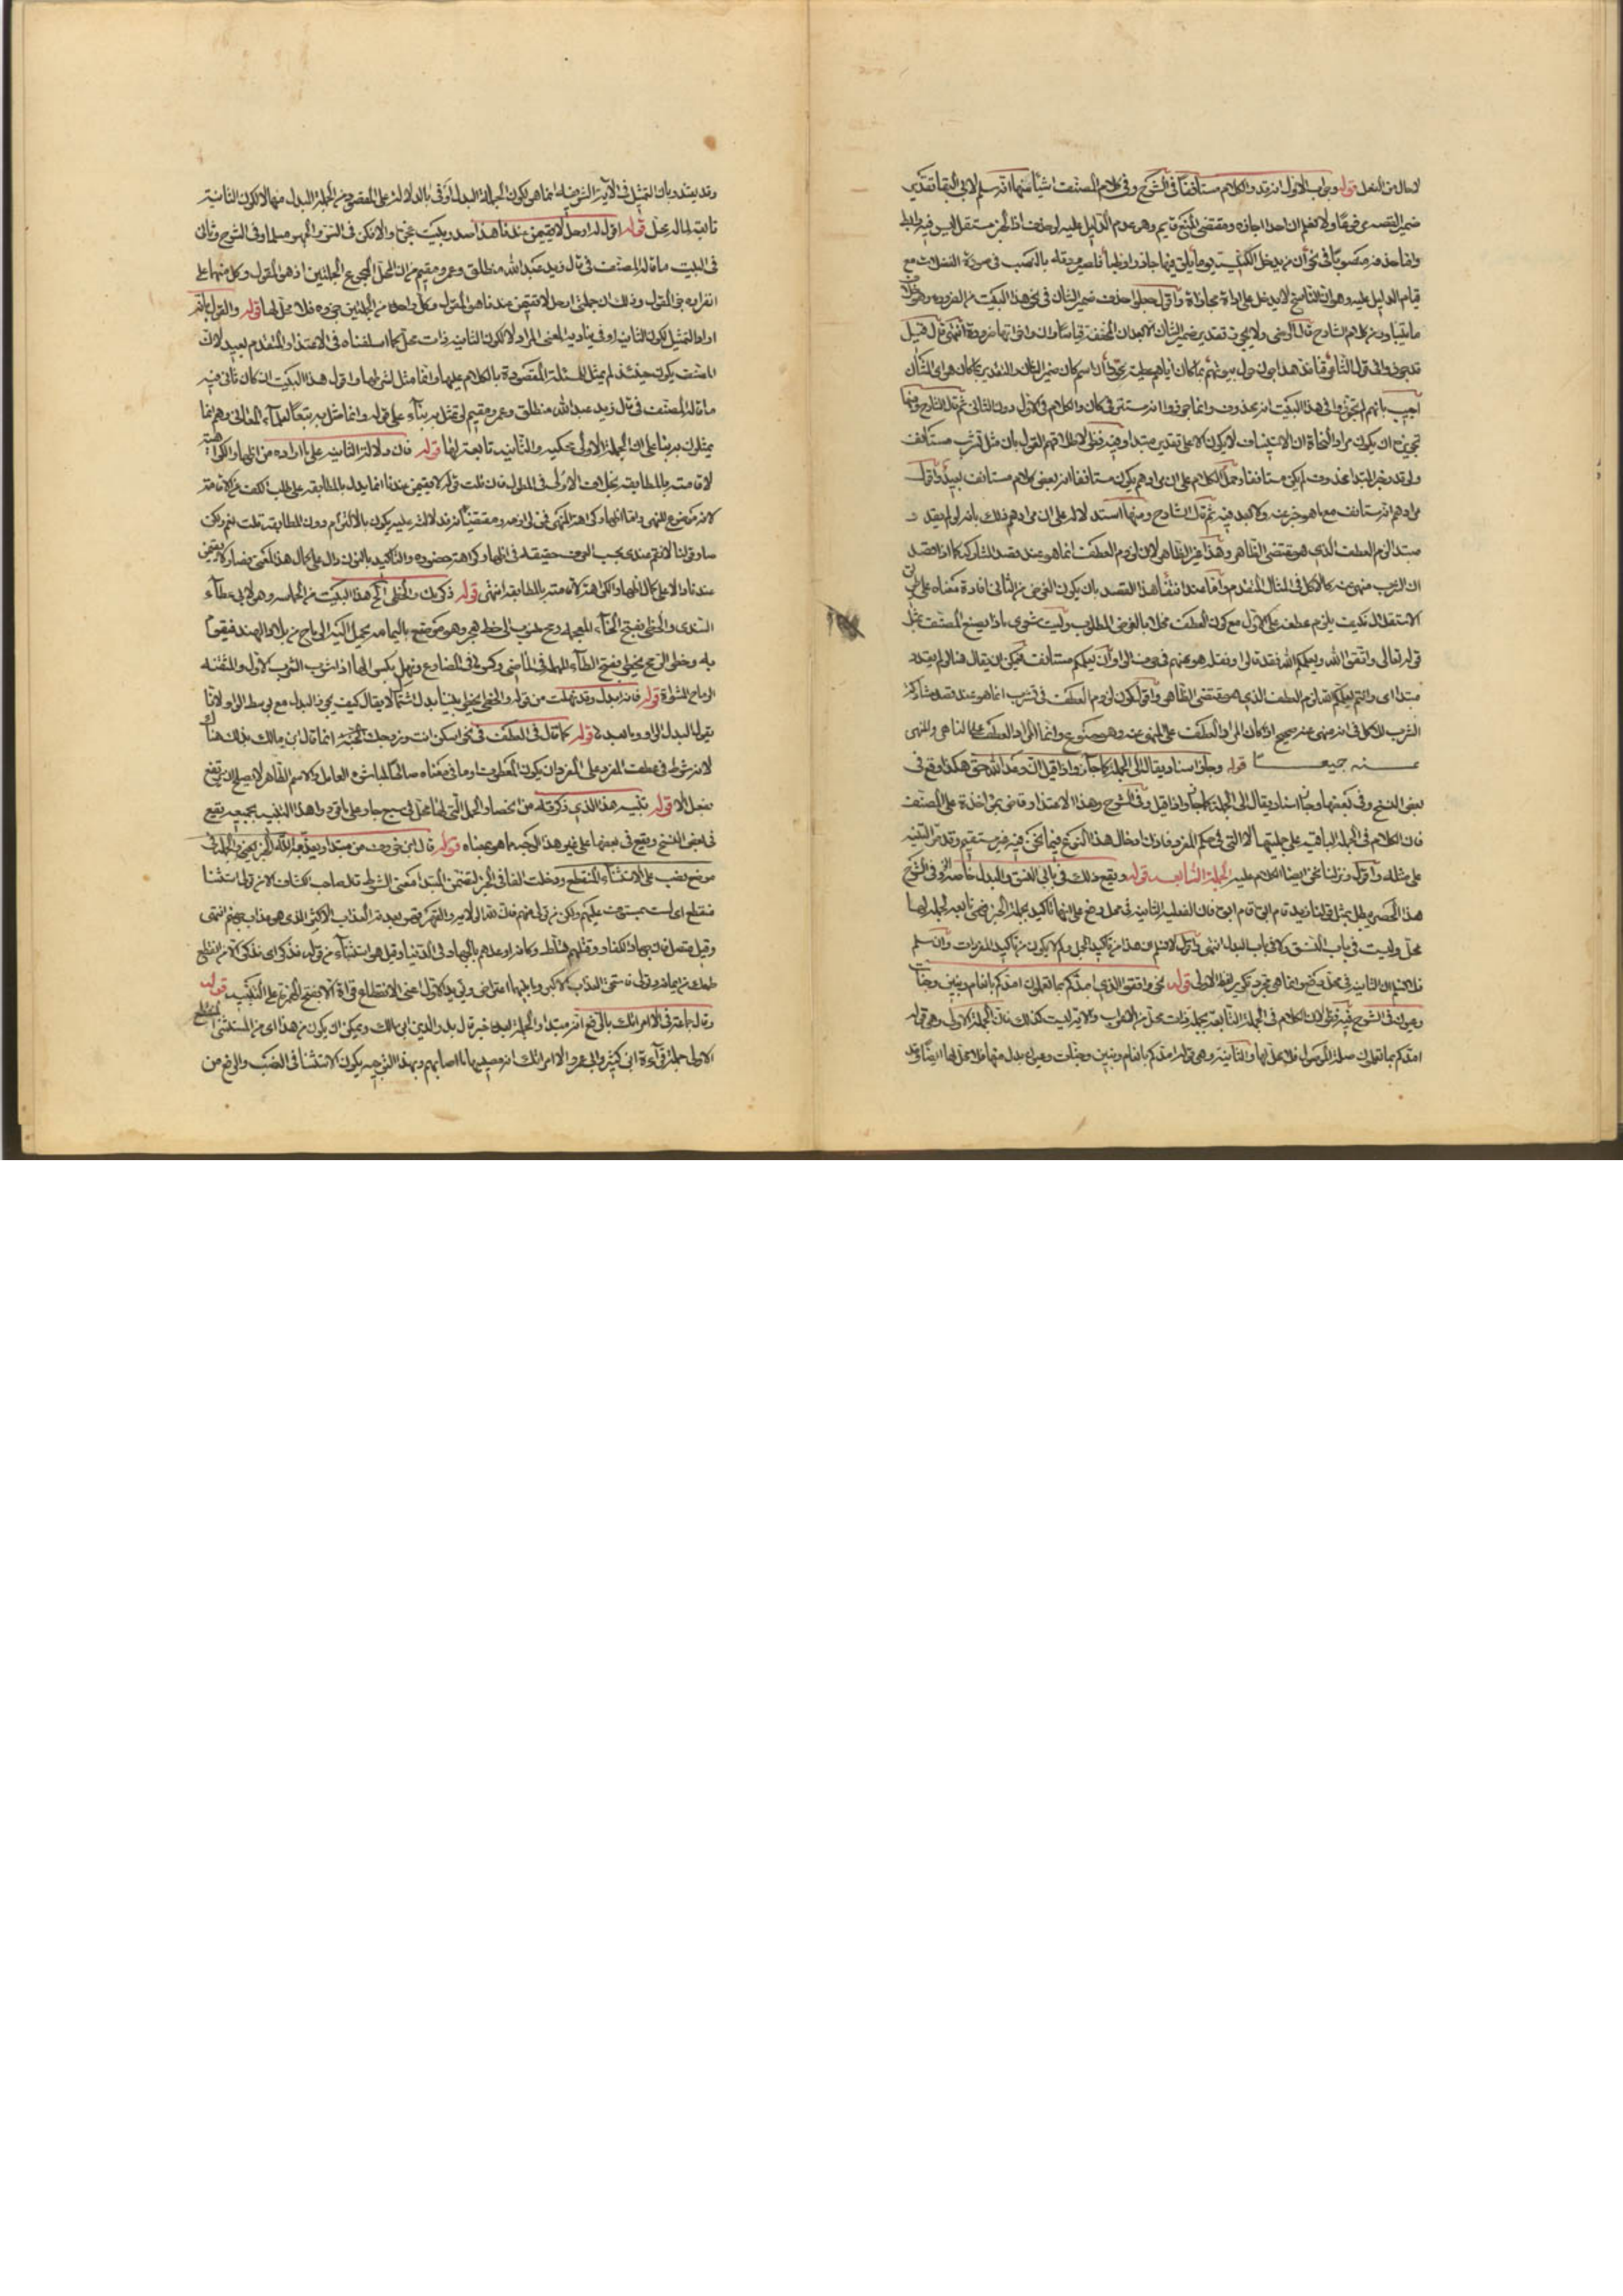 لا حال من الفعل قوله وجواب الاول انه قد والكلام مستأنفا في الشرح وفي كلام المصنف اشياء منها انه سلم لابي البقا تقدير
ضمير القصة مرفوعا ولا نعلم ان احدا اجازه ومقتضى المنع قايم وهو عدم الدليل عليه لو حذف اذ الخبر مستقل ليس فيه رابط
وانما حذف منصوبا في نحو ان من يدخل الكنيسة يوما يلق فيها جاذرا وظباء لانه بالنصب في صورة الفضلات مع
قيام الدليل عليه وهو ان الناسخ لا يدخل على اداة مجازاة واقول حذف ضمير الشان في نحو هذا البيت من الضرورة وهو خلاف
ما يتبادر من كلام الشارح قال الرضي ولا يجوز تقدير ضمير الشان الا بعد ان المخففة قياسا وان واخواتها ضرورة انتهى فان قيل
قد جوزوا في قول الشاعر قنافذ هداجون حول بيوتهم بما كان اياهم عطية عودا ان اسم كان ضمير الشان والتقدير بما كان هو اي الشان
اجيب بانهم لم يجوزوا في هذا البيت انه محذوف وانما جوزوا انه مستتر في كان والكلام في الاول دون الثاني ثم قال الشارح ومنها
تجويزه ان يكون مراد النحاة ان الاستيناف لا يكون الا على تقدير مبتدا وفيه نظر لاطلاقهم القول بان مثل تشرب مستأنف
ولو قدر خبر المبتدا محذوف لم يكن مستأنفا وحمل الكلام على ان مرادهم يكون مستأنفا انه بعض كلام مستأنف بعيد واقول
مرادهم انه مستأنف مع ما هو خبر عنه ولا بعد فيه ثم قال الشارح ومنها استدلاله على ان مرادهم ذلك بانه لو لم يقدر
مبتدا لزم العطف الذي هو مقتضى الظاهر وهذا غير الظاهر لان لزوم العطف انما هو عند قصد المشاركة
الاستقلال فكيف يلزم عطفه على الاول مع كون العطف مخلا بالغرض المطلوب وليت شعري ماذا يصنع المصنف بمثل
قوله تعالى واتقوا الله ويعلمكم الله فقد قالوا ونقله هو عنهم في حرف الواو ان يعلمكم مستأنف فيمكن ان يقال هنا لو لم يقدر
مبتدا اي وانتم يعلمكم الله لزم العطف الذي هو مقتضى الظاهر واقول كون لزوم العطف في تشرب انما هو عند قصد مشاركة
الشرب للاكل في انه منهي عنه صحيح اذا كان المراد العطف على المنهي عنه وهو ممنوع وانما المراد العطف على الناهي والمنهي
عنه جميعا قوله وجاز اسناد يقال الى الجملة كما جاز واذا قيل ان وعد الله حق هكذا وقع في
بعض النسخ وفي بعضها وجاز اسناد يقال الى الجملة كما جاز واذا قيل وفي الشرح وهذا الاعتذار قاضي بمؤاخذة على المصنف
فان الكلام في الجملة الباقية على جمليتها لا التي في حكم المفرد فاذن ادخال هذا النوع فيما نحن فيه غير مستقيم وقد مر التنبيه
على مثله واقول ومر لنا نحن ايضا الكلام عليه الجملة التابعة قوله ويقع ذلك في بابي النسق والبدل خاصة في الشرح
هذا الحصر يبطل بمثل قولنا زيد قام ابوه قام ابوه فان الفعلية الثانية في محل رفع على انها تاكيد لجملة الخبر فهي تابعة لجملة لها
محل وليست في باب النسق ولا في باب البدل انتهى واقول لا نسلم ان هذا من تأكيد الجمل ولم لا يكون من تأكيد المفردات وان سلم
فلا نسلم ان الثانية في محل رفع وانما هي مجرد تكرير لفظ الاولى قوله نحو واتقوا الذي امدكم بما تعلمون امدكم بانعام وبنين وجنات
وعيون في الشرح فيه نظر لان الكلام في الجملة التابعة لجملة ذات محل من الاعراب والاية ليست كذلك فان الجملة الاولى وهي قوله
امدكم بما تعلمون صلة الموصول فلا محل لها والثانية وهي قوله امدكم بانعام وبنين وجنات وعيون بدل منها فلا محل لها ايضا وقد
وقد يعتذر بان التمثيل في الآية الشريفة انما هو لكون الجملة البدل اوفى بالدلالة على المقصود من الجملة المبدل منها لا لكون الثانية
تابعة لما له محل قوله اقول له ارحل لا تقيمن عندنا هذا صدر بيت عجزه والا فكن في السر والجهر مسلما وفي الشرح وشان
في البيت ما قاله المصنف في قال زيد عبد الله منطلق وعمرو مقيم من ان المحل لمجموع الجملتين اذ هو المقول وكل منهما على
انفراده جزء المقول وذلك ان جملة ارحل لا تقيمن عندنا هو المقول وكل واحد من الجملتين جزوه فلا محل لها قوله والقول بانه
اراد التمثيل لكون الثانية اوفى بتأدية المعنى المراد لا لكون الثانية ذات محل كما اسلفناه في الاعتذار المتقدم بعيد لان
المصنف يكون حينئذ لم يمثل للمسئلة المقصودة بالكلام عليها وانما مثل لشرطها واقول هذا البيت ان كان ثاني فيه
ما قاله المصنف في قال زيد عبد الله منطلق وعمرو مقيم لم يمثل به بناء على قوله وانما مثل به تبعا لعلماء المعاني وهم انما
يمثلون به بناء على ان الجملة الاولى محكية والثانية تابعة لها قوله فان دلالة الثانية على ما اراده من اظهار الكراهية
لاقامته بالمطابقة بخلاف الاولى في المطول فان قلت قوله لا تقيمن عندنا انما يدل بالمطابقة على طلب الكف عن الاقامة
لانه موضوع للنهي واما اظهار كراهة المنهي فمن لوازمه ومقتضياته فدلالته عليه يكون بالالتزام دون المطابقة قلت نعم ولكن
صار قولنا لا تقم عندي بحسب العرف حقيقة في اظهار كراهة حضوره والتأكيد بالنون دال على كمال هذا المعنى فصار لا تقيمن
عندنا دالا على كمال اظهار الكراهة لاقامته بالمطابقة انتهى قوله ذكرتك والخطي الخ هذا البيت من الحماسة وهو لابي عطاء
السندي والخطي بفتح الخاء المعجمة رمح منسوب الى خط هجر وهو موضع باليمامة يحمل اليه الرماح من بلاد الهند فيقوم
به وخطر الرمح يخطر بفتح الطاء المهملة في الماضي وكسرها في المضارع ونهل بكسر الهاء اذا شرب الشرب الاول والمثقفة
الرماح المسواة قوله فانه ابدل وقد نهلت من قوله والخطي يخطر بيننا بدل اشتمال لا يقال كيف يجوز البدل مع توسط الواو لانا
نقول البدل الواو وما بعدها قوله كما قال في العطف في نحو اسكن انت وزوجك الجنة انما قال ابن مالك ذلك هناك
لانه شرط في عطف المفرد على المفرد ان يكون المعطوف او ما في معناه صالحا لمباشرة العامل والاسم الظاهر لا يصلح ان يرتفع
بفعل الامر قوله تنبيه هذا الذي ذكرته من انحصار الجمل التي لها محل في سبع جار على ما قرروا هذا التنبيه بجميعه يقع
في بعض النسخ ويقع في بعضها على غير هذا الوجه ما هو بمعناه قوله قال ابن خروف من مبتدا ويعذبه الله الخبر والجملة في
موضع نصب على الاستثناء المنقطع ودخلت الفا في الخبر لتضمن المبتدا معنى الشرط قال صاحب الكشاف الا من تولى استثنا
منقطع اي لست بمستول عليهم ولكن من تولى منهم فان لله الولاية والقهر فهو يعذبه العذاب الاكبر الذي هو عذاب جهنم انتهى
وقيل متصل فان جهاد الكفار وقتلهم تسلط وكانه اوعدهم بالجهاد في الدنيا وقيل هو استثناء من قوله فذكر اي فذكر الا من انقطع
طمعك من ايمانه وتولى فاستحق العذاب الاكبر وما بينهما اعتراض ويؤيد الاول اعني الانقطاع قراءة الا بفتح الهمزة على التنبيه قوله
وقال جماعة في الا امراتك بالرفع انه مبتدا والجملة بعده خبر قال بدر الدين ابن مالك ويمكن ان يكون من هذا اي من المستثنى المنقطع
الاولى حمل قراءة ابن كثير وابي عمرو الا امراتك انه مصيبها ما اصابهم وبهذا التوجيه يكون الاستثنا في النصب والرفع من